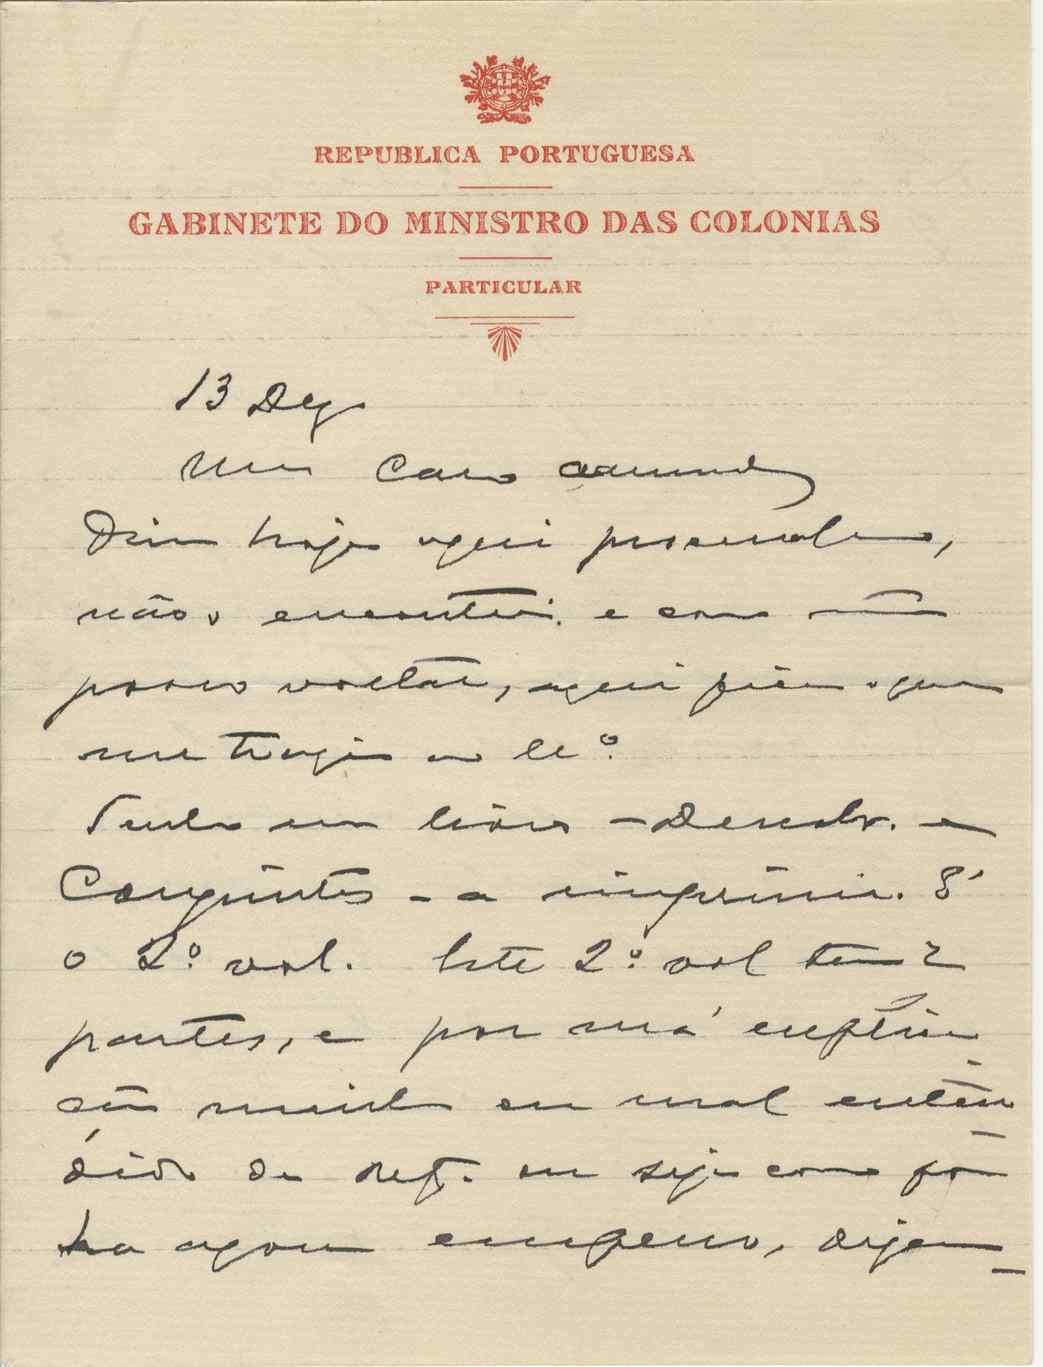 REPUBLICA PORTUGUESA
GABINETE DO MINISTRO DAS COLONIAS
PARTICULAR
13 Dez
Meu Caro
Vim hoje aqui procural-o,
não o encontrei e como não
posso voltar, aqui fica o que
me trazia
Tenho um livro – Descobr. e
Conquistas – a imprimir. É
o 2º vol. Este 2º vol tem 2
partes, e por má explica
ção minha ou mal enten
dido da ou seja como fô
ra agora